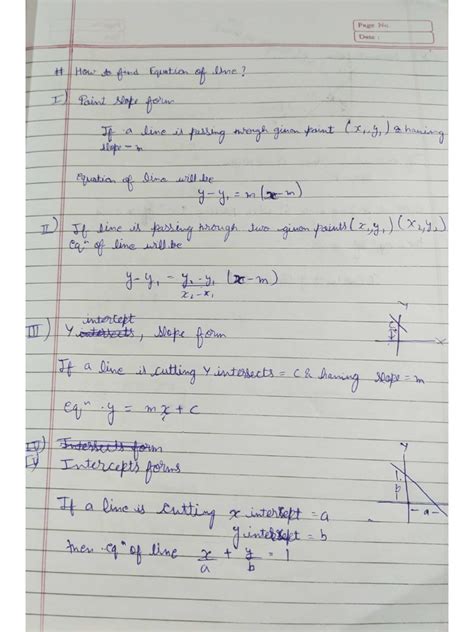 Page No.
Date :
# How to find Equation of line?
I) Point slope form
If a line is passing through given point (x₁, y₁) & having
slope = m
Equation of line will be
y-y₁ = m(x-m)
II) If line is passing through two given points (x₁, y₁) (x₂, y₂)
eqⁿ of line will be
y-y₁ = y₂-y₁ (x-m)
x₂-x₁
intercept
III) Y intersects, slope form
y
c
x
If a line is cutting Y intersects = c & having slope = m
eqⁿ · y = mx + c
IV) Intersects form
IV) Intercepts forms
y
b
-a-
If a line is cutting x intersept = a
y intersept = b
then eqⁿ of line x/a + y/b = 1